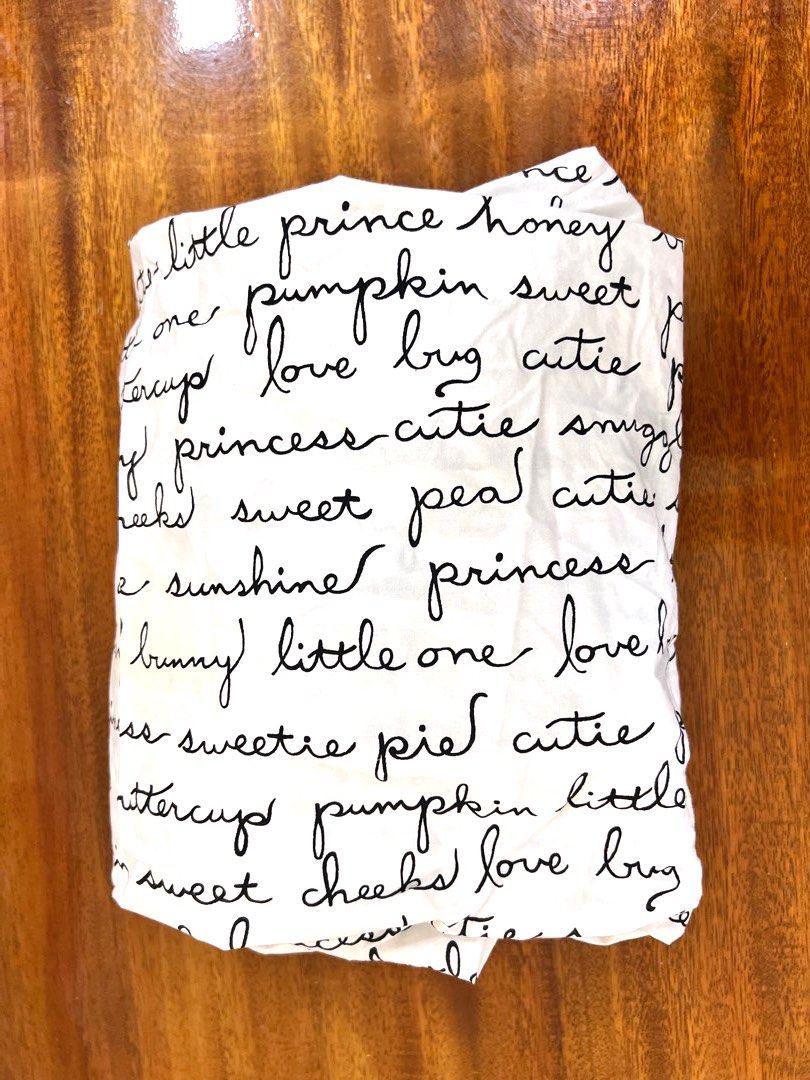 little prince honey
one pumpkin sweet
love bug cutie
princess cutie
sweet pea cutie
sunshine princess
bunny little one love
sweetie pie cutie
pumpkin little
sweet cheeks love bug